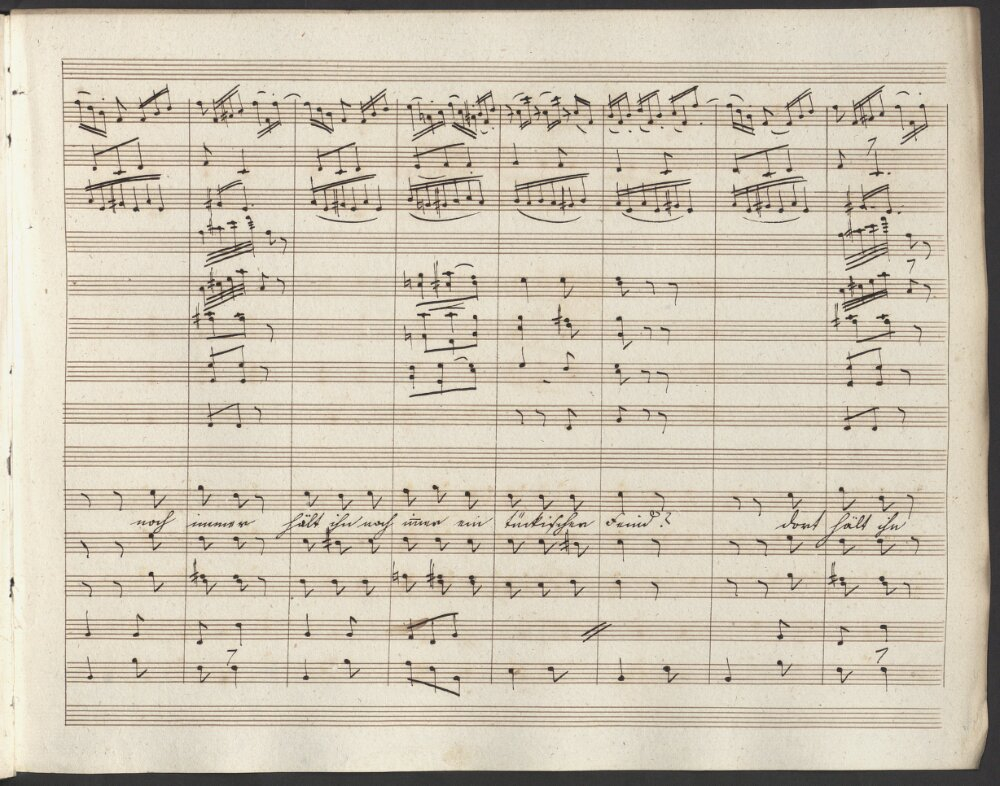 noch immer hält ihn noch im̄er ein tückischer Feind? dort hält ihn